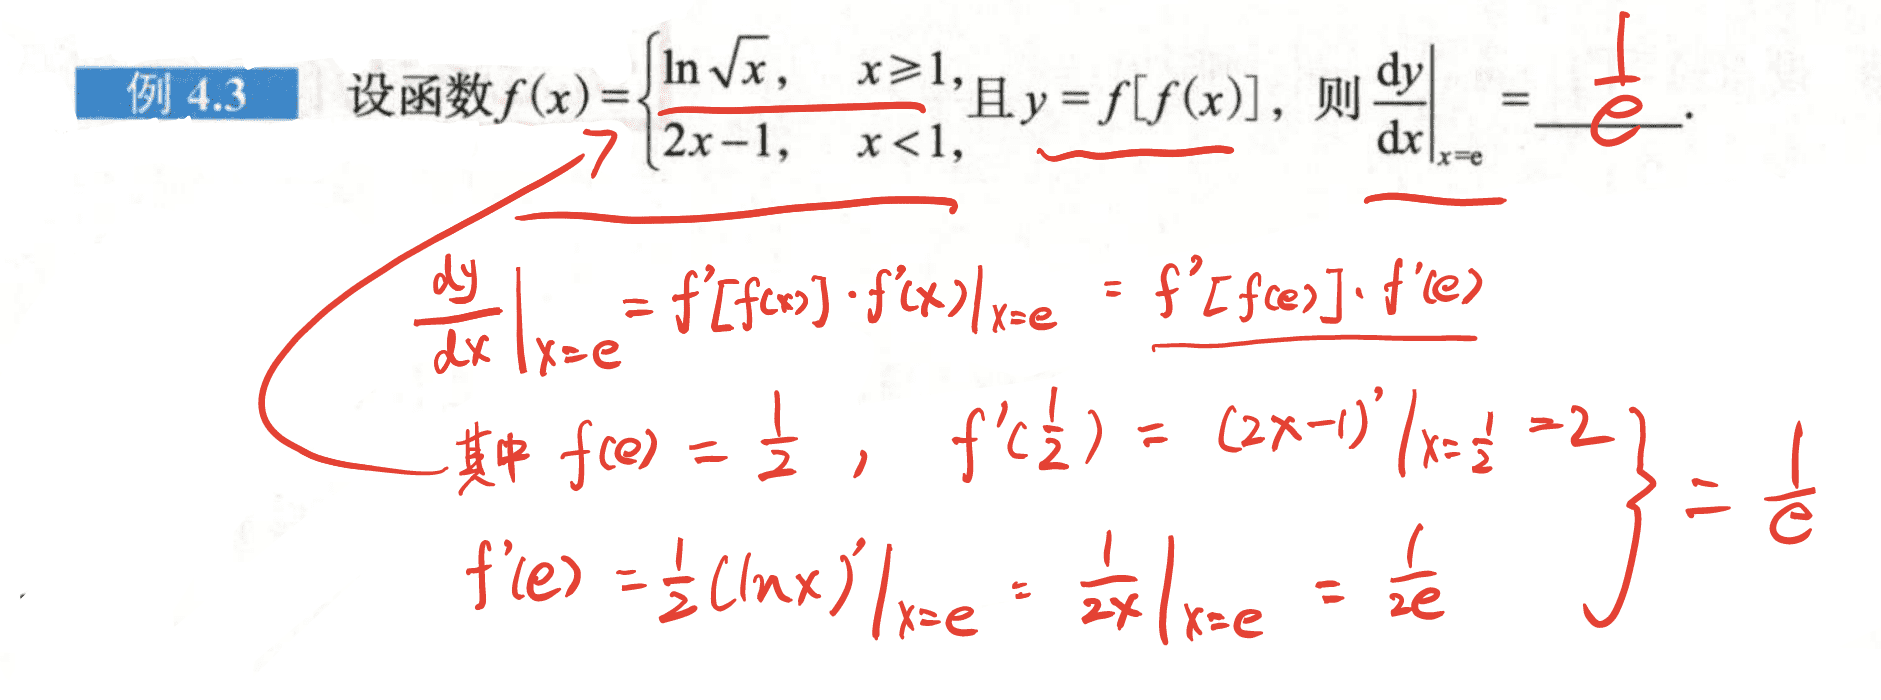 例 4.3 设函数f(x)={ln√x, x≥1, 2x−1, x<1, 且 y=f[f(x)], 则 dy/dx|x=e = 1/e .
dy/dx|x=e = f'[f(x)]·f'(x)|x=e = f'[f(e)]·f'(e)
其中 f(e) = 1/2 , f'(1/2) = (2x−1)'|x=1/2 =2
f'(e) = 1/2(lnx)'|x=e = 1/2x|x=e = 1/2e } = 1/e